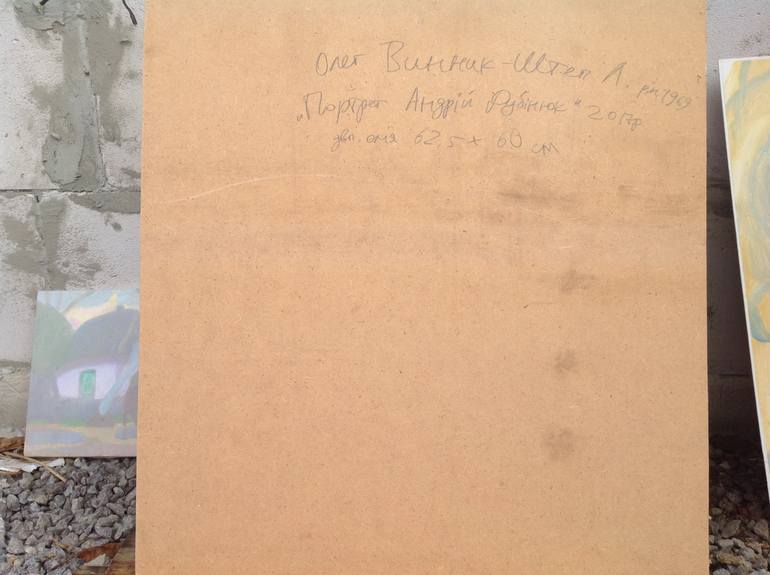 Олег Винник-Штеп А. рн 1969
„Портрет Андрій Рубінюк" 2017р
двп. олія 62,5 x 60 см